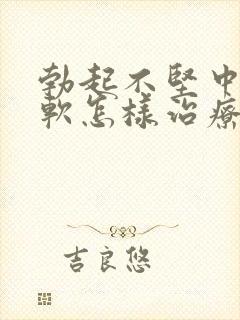 勃起不坚中
软怎样治疗
吉良悠